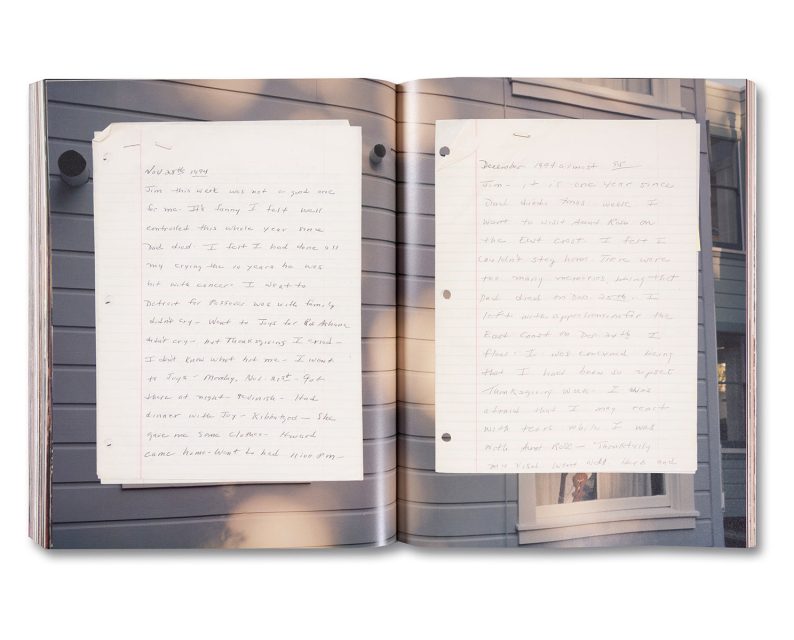 Nov. 28th 1994
Jim - this week was not a good one
for me. It's funny I felt well
controlled this whole year since
Dad died. I felt I had done all
my crying the 10 years he was
hit with cancer. I went to
Detroit for Passover was with family
didn't cry - Went to Joys for Rosh Ashona
didn't cry, but Thanksgiving I cried -
I don't know what hit me - I went
to Joys - Monday, Nov. 21st - Got
there at night - 9:00ish - Had
dinner with Joy - Kibbitzed - She
gave me some clothes - Howard
came home - Went to bed 11:00 P.M -
December 1994 almost 95
Jim - it is one year since
Dad died. Xmas week I
went to visit Aunt Rose on
the East Coast. I felt I
couldn't stay home. There were
too many memories being that
Dad died on Dec. 25th. I
left with apprehensions for the
East Coast on Dec. 20th I
flew. I was concerned being
that I had been so upset
Thanksgiving week. I was
afraid that I may react
with tears while I was
with Aunt Rose - Thankfully
my visit went well. Herb and